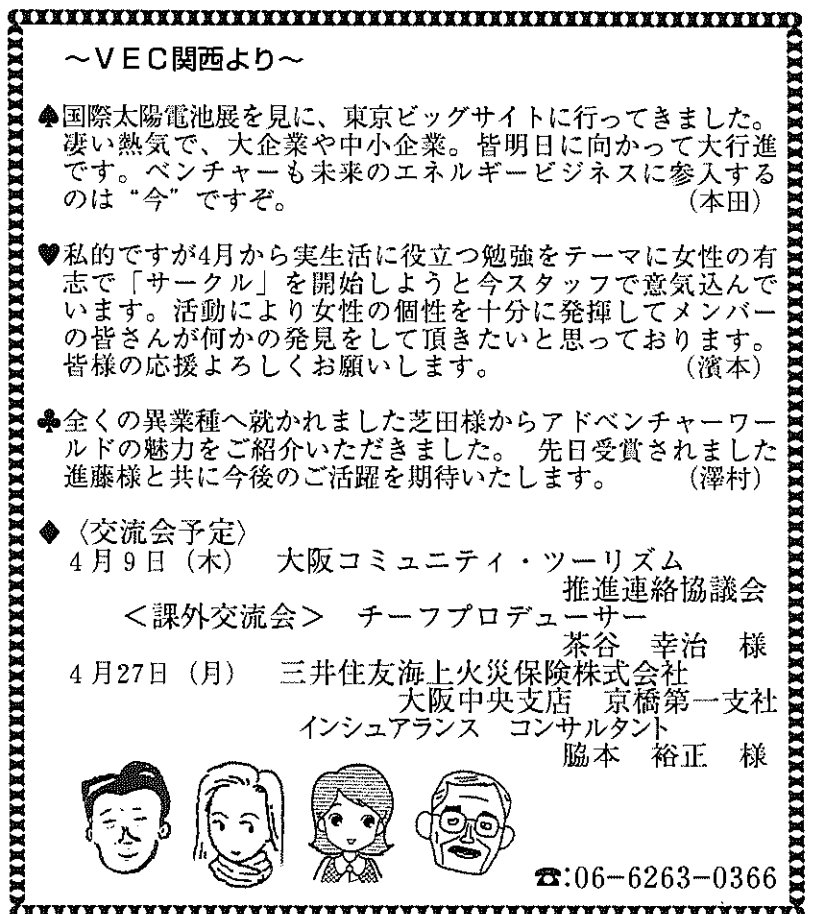 ～ＶＥＣ関西より～
♠国際太陽電池展を見に、東京ビッグサイトに行ってきました。
凄い熱気で、大企業や中小企業。皆明日に向かって大行進
です。ベンチャーも未来のエネルギービジネスに参入する
のは“今”ですぞ。　（本田）
♥私的ですが4月から実生活に役立つ勉強をテーマに女性の有
志で「サークル」を開始しようと今スタッフで意気込んで
います。活動により女性の個性を十分に発揮してメンバー
の皆さんが何かの発見をして頂きたいと思っております。
皆様の応援よろしくお願いします。　（濱本）
♣全くの異業種へ就かれました芝田様からアドベンチャーワー
ルドの魅力をご紹介いただきました。　先日受賞されました
進藤様と共に今後のご活躍を期待いたします。　（澤村）
◆〈交流会予定〉
4月9日（木）　大阪コミュニティ・ツーリズム
推進連絡協議会
＜課外交流会＞　チーフプロデューサー
茶谷　幸治　様
4月27日（月）　三井住友海上火災保険株式会社
大阪中央支店　京橋第一支社
インシュアランス　コンサルタント
脇本　裕正　様
☎:06-6263-0366